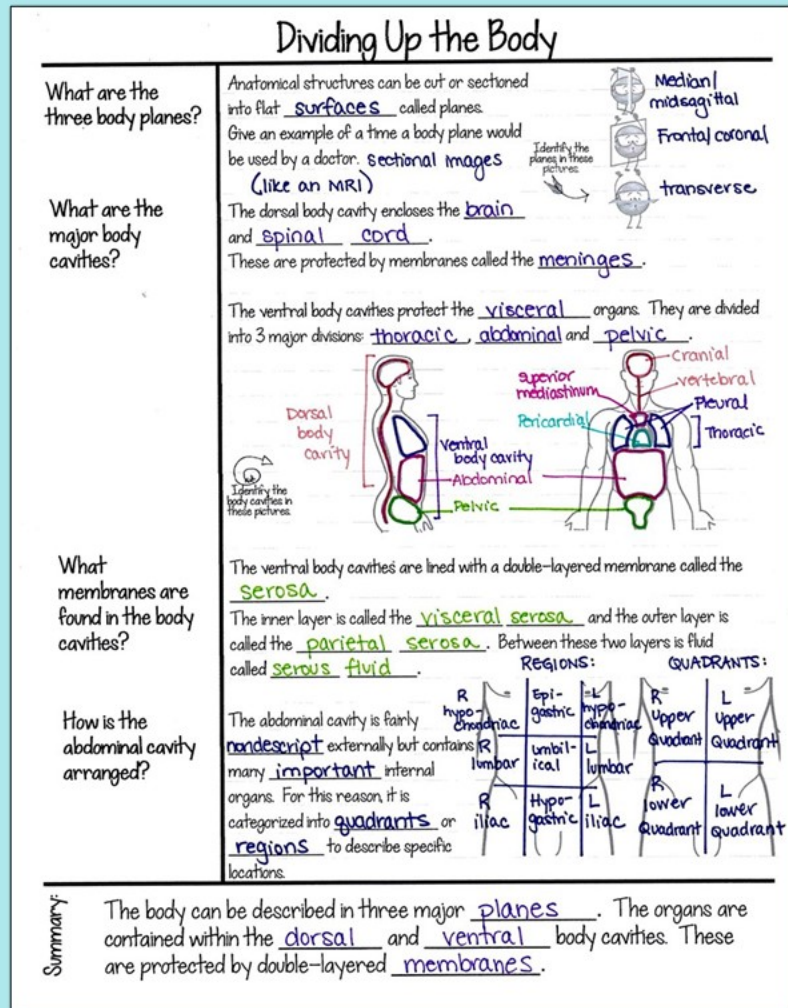 Dividing Up the Body
What are the
three body planes?
Anatomical structures can be cut or sectioned
into flat surfaces called planes.
Give an example of a time a body plane would
be used by a doctor. Sectional images
(like an MRI)
Identify the
planes in these
pictures
Median/
midsagittal
Frontal coronal
transverse
What are the
major body
cavities?
The dorsal body cavity encloses the brain
and spinal cord.
These are protected by membranes called the meninges.
The ventral body cavities protect the visceral organs. They are divided
into 3 major divisions: thoracic, abdominal and pelvic.
Dorsal
body
cavity
Identify the
body cavities in
these pictures.
Ventral
body cavity
Abdominal
Pelvic
superior
mediastinum
Pericardial
Cranial
vertebral
Pleural
Thoracic
What
membranes are
found in the body
cavities?
The ventral body cavities are lined with a double-layered membrane called the
serosa.
The inner layer is called the visceral serosa and the outer layer is
called the parietal serosa. Between these two layers is fluid
called serous fluid.
How is the
abdominal cavity
arranged?
The abdominal cavity is fairly
nondescript externally but contains
many important internal
organs. For this reason, it is
categorized into quadrants or
regions to describe specific
locations.
REGIONS:
R
hypo-
chondriac
Epi-
gastric
L
hypo-
chondriac
R
lumbar
Umbil-
ical
L
lumbar
R
iliac
Hypo-
gastric
L
iliac
QUADRANTS:
R
Upper
Quadrant
L
Upper
Quadrant
R
lower
Quadrant
L
lower
Quadrant
Summary:
The body can be described in three major planes. The organs are
contained within the dorsal and ventral body cavities. These
are protected by double-layered membranes.